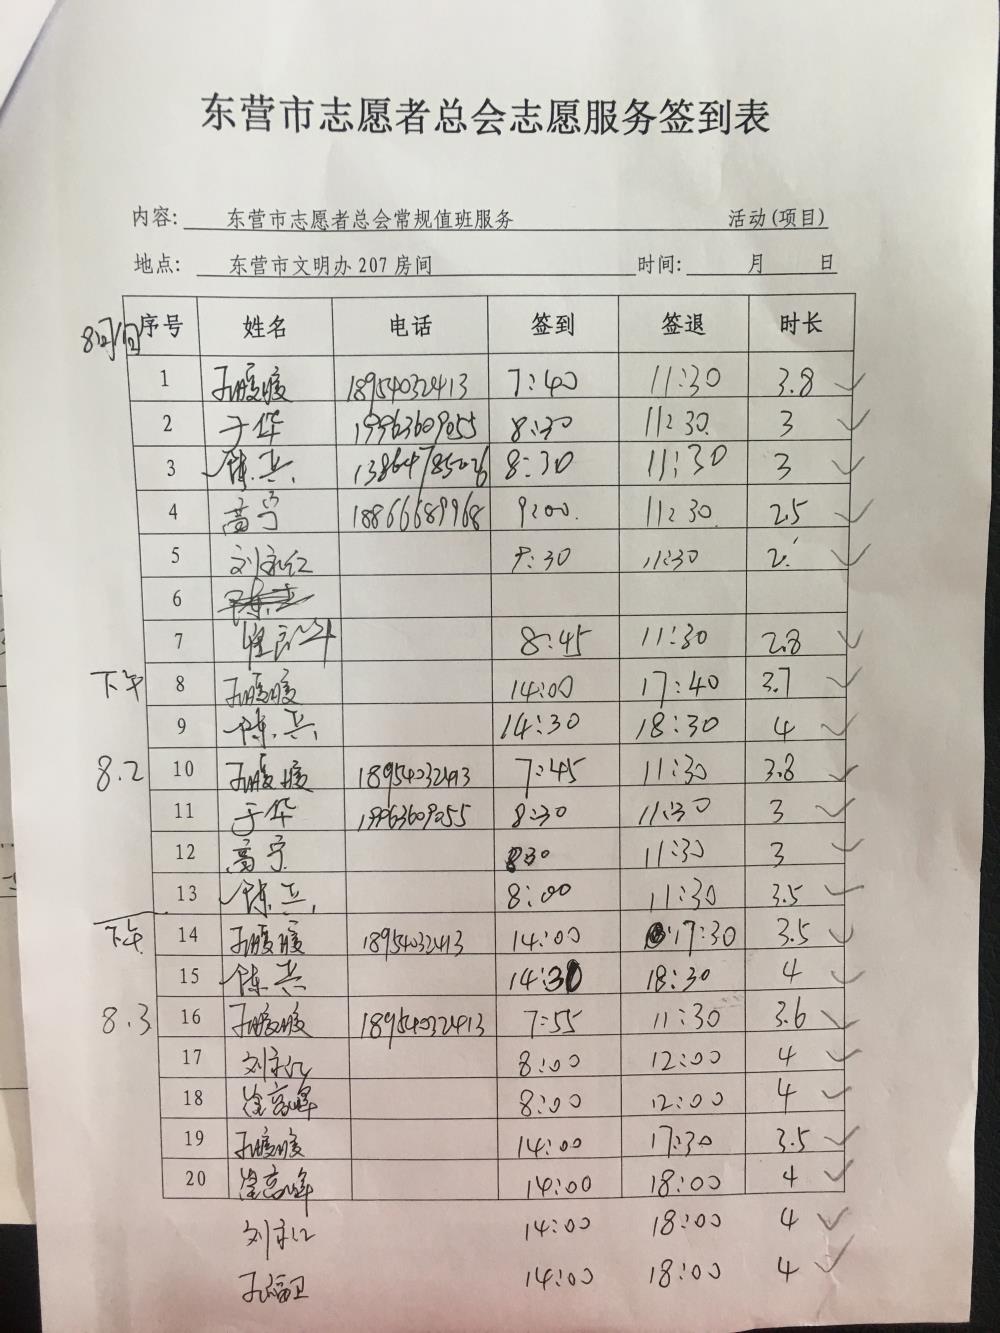 东营市志愿者总会志愿服务签到表
内容: 东营市志愿者总会常规值班服务 活动(项目)
地点: 东营市文明办207房间 时间: 月 日
序号 姓名 电话 签到 签退 时长
1 孔暖暖 18954032413 7:40 11:30 3.8
2 于华 19963609055 8:30 11:30 3
3 陈兵 13864785026 8:30 11:30 3
4 高宁 18866689968 9:00 11:30 2.5
5 刘永红 9:30 11:30 2
6
7 8:45 11:30 2.8
下午 8 孔暖暖 14:00 17:40 3.7
9 陈兵 14:30 18:30 4
8.2 10 孔暖暖 18954032413 7:45 11:30 3.8
11 于华 19963609055 8:30 11:30 3
12 高宁 8:30 11:30 3
13 陈兵 8:00 11:30 3.5
下午 14 孔暖暖 18954032413 14:00 17:30 3.5
15 陈兵 14:30 18:30 4
8.3 16 孔暖暖 18954032413 7:55 11:30 3.6
17 刘永红 8:00 12:00 4
18 徐高峰 8:00 12:00 4
19 孔暖暖 14:00 17:30 3.5
20 徐高峰 14:00 18:00 4
刘永红 14:00 18:00 4
孔福卫 14:00 18:00 4